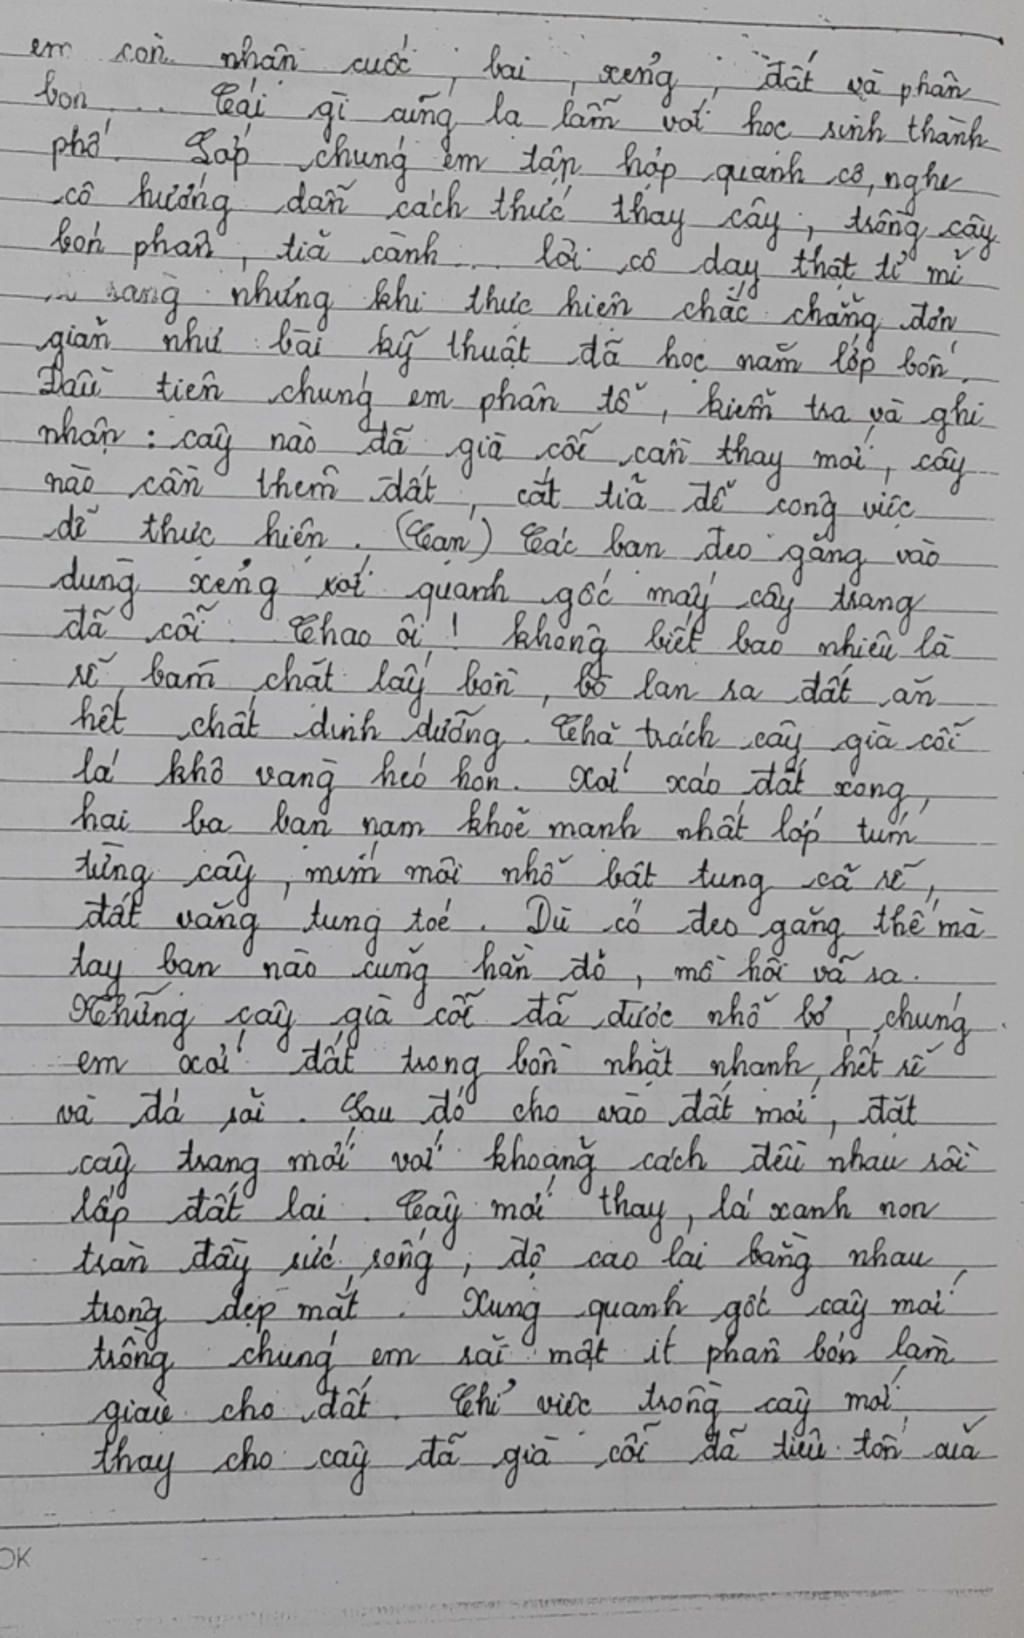 em còn nhận cuốc, bai, xẻng, đất và phân
bón... Cái gì cũng lạ lẫm với học sinh thành
phố. Lớp chúng em tập hợp quanh cô, nghe
cô hướng dẫn cách thức thay cây, trồng cây
bón phân, tỉa cành... lời cô dạy thật tỉ mỉ
ràng nhưng khi thực hiện chắc chẳng đơn
giản như bài kỹ thuật đã học năm lớp bốn.
Đầu tiên chúng em phân tổ, kiểm tra và ghi
nhận: cây nào đã già cỗi cần thay mới, cây
nào cần thêm đất, cắt tỉa để công việc
dễ thực hiện. (Can) Các bạn đeo găng vào
dùng xẻng xới quanh gốc mấy cây trang
đã cỗi. Chao ôi! không biết bao nhiêu là
rễ bám chặt lấy bồn, bò lan ra đất ăn
hết chất dinh dưỡng. Thả trách cây già cỗi
lá khô vàng héo hon. Xới xáo đất xong,
hai ba bạn nam khoẻ mạnh nhất lớp túm
từng cây, mím môi nhổ bật tung cả rễ,
đất văng tung toé. Dù có đeo găng thế mà
tay bạn nào cũng hằn đỏ, mồ hôi vã ra.
Những cây già cỗi đã được nhổ bỏ, chúng
em xới đất trong bồn nhặt nhanh hết rễ
và đá sỏi. Sau đó cho vào đất mới, đặt
cây trang mới với khoảng cách đều nhau rồi
lấp đất lại. Cây mới thay, lá xanh non
tràn đầy sức sống, độ cao lại bằng nhau
trông đẹp mắt. Xung quanh gốc cây mới
trồng chúng em rải một ít phân bón làm
giàu cho đất. Chỉ việc trồng cây mới
thay cho cây đã già cỗi đã tiêu tốn quá